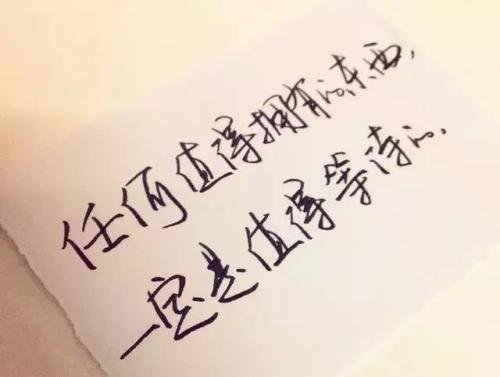 任何值得拥有的东西，
一定是值得等待的.